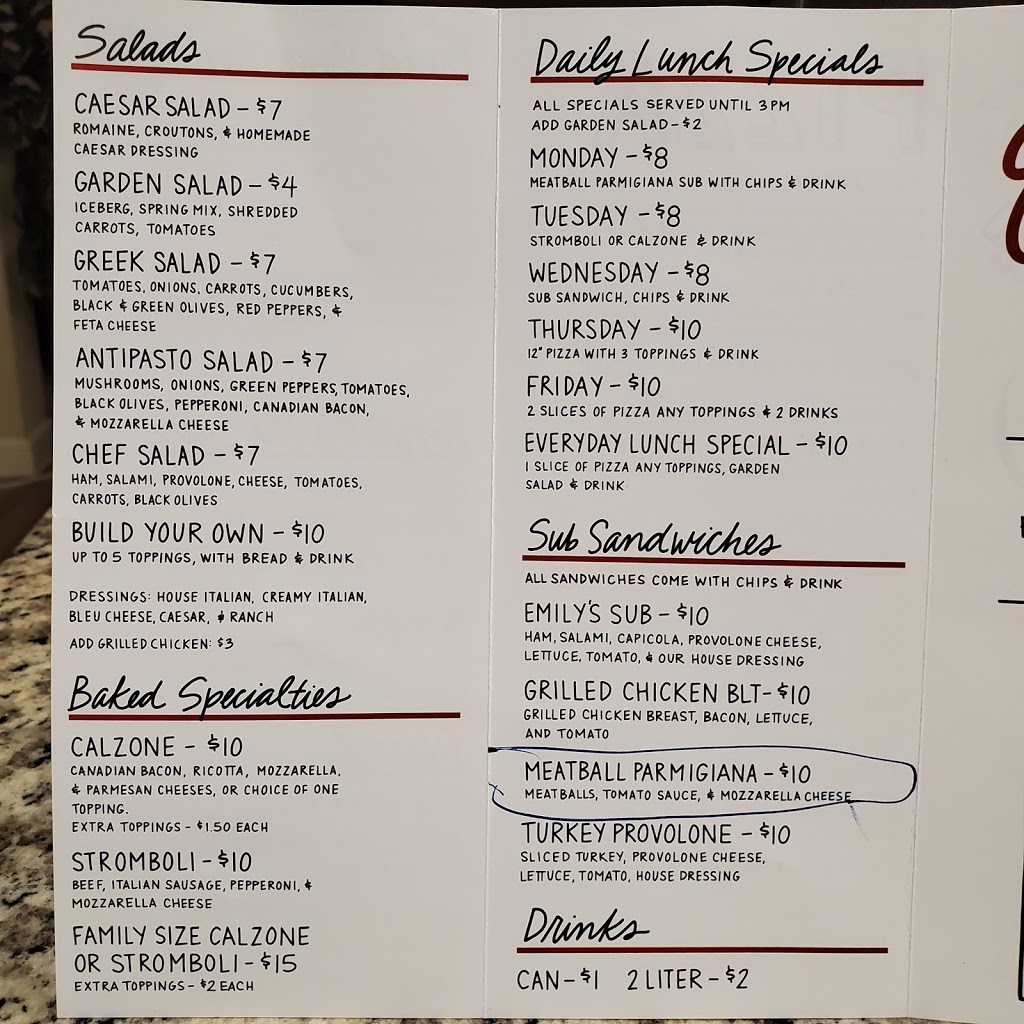 Salads
CAESAR SALAD - $7
ROMAINE, CROUTONS, & HOMEMADE
CAESAR DRESSING
GARDEN SALAD - $4
ICEBERG, SPRING MIX, SHREDDED
CARROTS, TOMATOES
GREEK SALAD - $7
TOMATOES, ONIONS, CARROTS, CUCUMBERS,
BLACK & GREEN OLIVES, RED PEPPERS, &
FETA CHEESE
ANTIPASTO SALAD - $7
MUSHROOMS, ONIONS, GREEN PEPPERS, TOMATOES,
BLACK OLIVES, PEPPERONI, CANADIAN BACON,
& MOZZARELLA CHEESE
CHEF SALAD - $7
HAM, SALAMI, PROVOLONE, CHEESE, TOMATOES,
CARROTS, BLACK OLIVES
BUILD YOUR OWN - $10
UP TO 5 TOPPINGS, WITH BREAD & DRINK
DRESSINGS: HOUSE ITALIAN, CREAMY ITALIAN,
BLEU CHEESE, CAESAR, & RANCH
ADD GRILLED CHICKEN: $3
Baked Specialties
CALZONE - $10
CANADIAN BACON, RICOTTA, MOZZARELLA,
& PARMESAN CHEESES, OR CHOICE OF ONE
TOPPING.
EXTRA TOPPINGS - $1.50 EACH
STROMBOLI - $10
BEEF, ITALIAN SAUSAGE, PEPPERONI, &
MOZZARELLA CHEESE
FAMILY SIZE CALZONE
OR STROMBOLI - $15
EXTRA TOPPINGS - $2 EACH
Daily Lunch Specials
ALL SPECIALS SERVED UNTIL 3PM
ADD GARDEN SALAD - $2
MONDAY - $8
MEATBALL PARMIGIANA SUB WITH CHIPS & DRINK
TUESDAY - $8
STROMBOLI OR CALZONE & DRINK
WEDNESDAY - $8
SUB SANDWICH, CHIPS & DRINK
THURSDAY - $10
12" PIZZA WITH 3 TOPPINGS & DRINK
FRIDAY - $10
2 SLICES OF PIZZA ANY TOPPINGS & 2 DRINKS
EVERYDAY LUNCH SPECIAL - $10
1 SLICE OF PIZZA ANY TOPPINGS, GARDEN
SALAD & DRINK
Sub Sandwiches
ALL SANDWICHES COME WITH CHIPS & DRINK
EMILY'S SUB - $10
HAM, SALAMI, CAPICOLA, PROVOLONE CHEESE,
LETTUCE, TOMATO, & OUR HOUSE DRESSING
GRILLED CHICKEN BLT - $10
GRILLED CHICKEN BREAST, BACON, LETTUCE,
AND TOMATO
MEATBALL PARMIGIANA - $10
MEATBALLS, TOMATO SAUCE, & MOZZARELLA CHEESE
TURKEY PROVOLONE - $10
SLICED TURKEY, PROVOLONE CHEESE,
LETTUCE, TOMATO, HOUSE DRESSING
Drinks
CAN - $1 2 LITER - $2